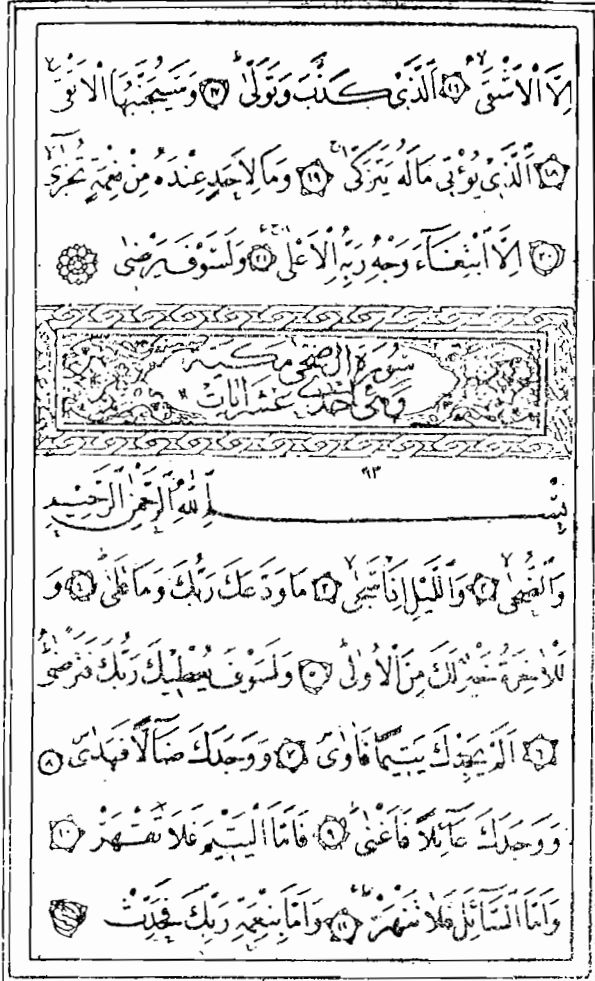 اِلَّا الْاَشْقٰىۙ ١٦ اَلَّذ۪ي كَذَّبَ وَتَوَلّٰىۜ ١٧ وَسَيُجَنَّبُهَا الْاَتْقٰىۙ
١٨ اَلَّذ۪ي يُؤْت۪ي مَالَهُ يَتَزَكّٰىۚ ١٩ وَمَا لِاَحَدٍ عِنْدَهُ مِنْ نِعْمَةٍ تُجْزٰىۙ
٢٠ اِلَّا ابْتِغَٓاءَ وَجْهِ رَبِّهِ الْاَعْلٰىۚ ٢١ وَلَسَوْفَ يَرْضٰى
سُورَةُ الضُّحٰى مَكِّيَّة
وَهِيَ اِحْدٰى عَشَرَ اٰيَات
٩٣
بِسْمِ اللّٰهِ الرَّحْمٰنِ الرَّح۪يمِ
وَالضُّحٰىۙ ٢ وَالَّيْلِ اِذَا سَجٰىۙ ٣ مَا وَدَّعَكَ رَبُّكَ وَمَا قَلٰىۜ ٤ وَ
لَلْاٰخِرَةُ خَيْرٌ لَكَ مِنَ الْاُو۫لٰىۜ ٥ وَلَسَوْفَ يُعْط۪يكَ رَبُّكَ فَتَرْضٰىۜ
٦ اَلَمْ يَجِدْكَ يَت۪يمًا فَاٰوٰىۖ ٧ وَوَجَدَكَ ضَٓالًّا فَهَدٰىۖ ٨
وَوَجَدَكَ عَٓائِلًا فَاَغْنٰىۜ ٩ فَاَمَّا الْيَت۪يمَ فَلَا تَقْهَرْۜ ١٠
وَاَمَّا السَّٓائِلَ فَلَا تَنْهَرْۜ ١١ وَاَمَّا بِنِعْمَةِ رَبِّكَ فَحَدِّثْ